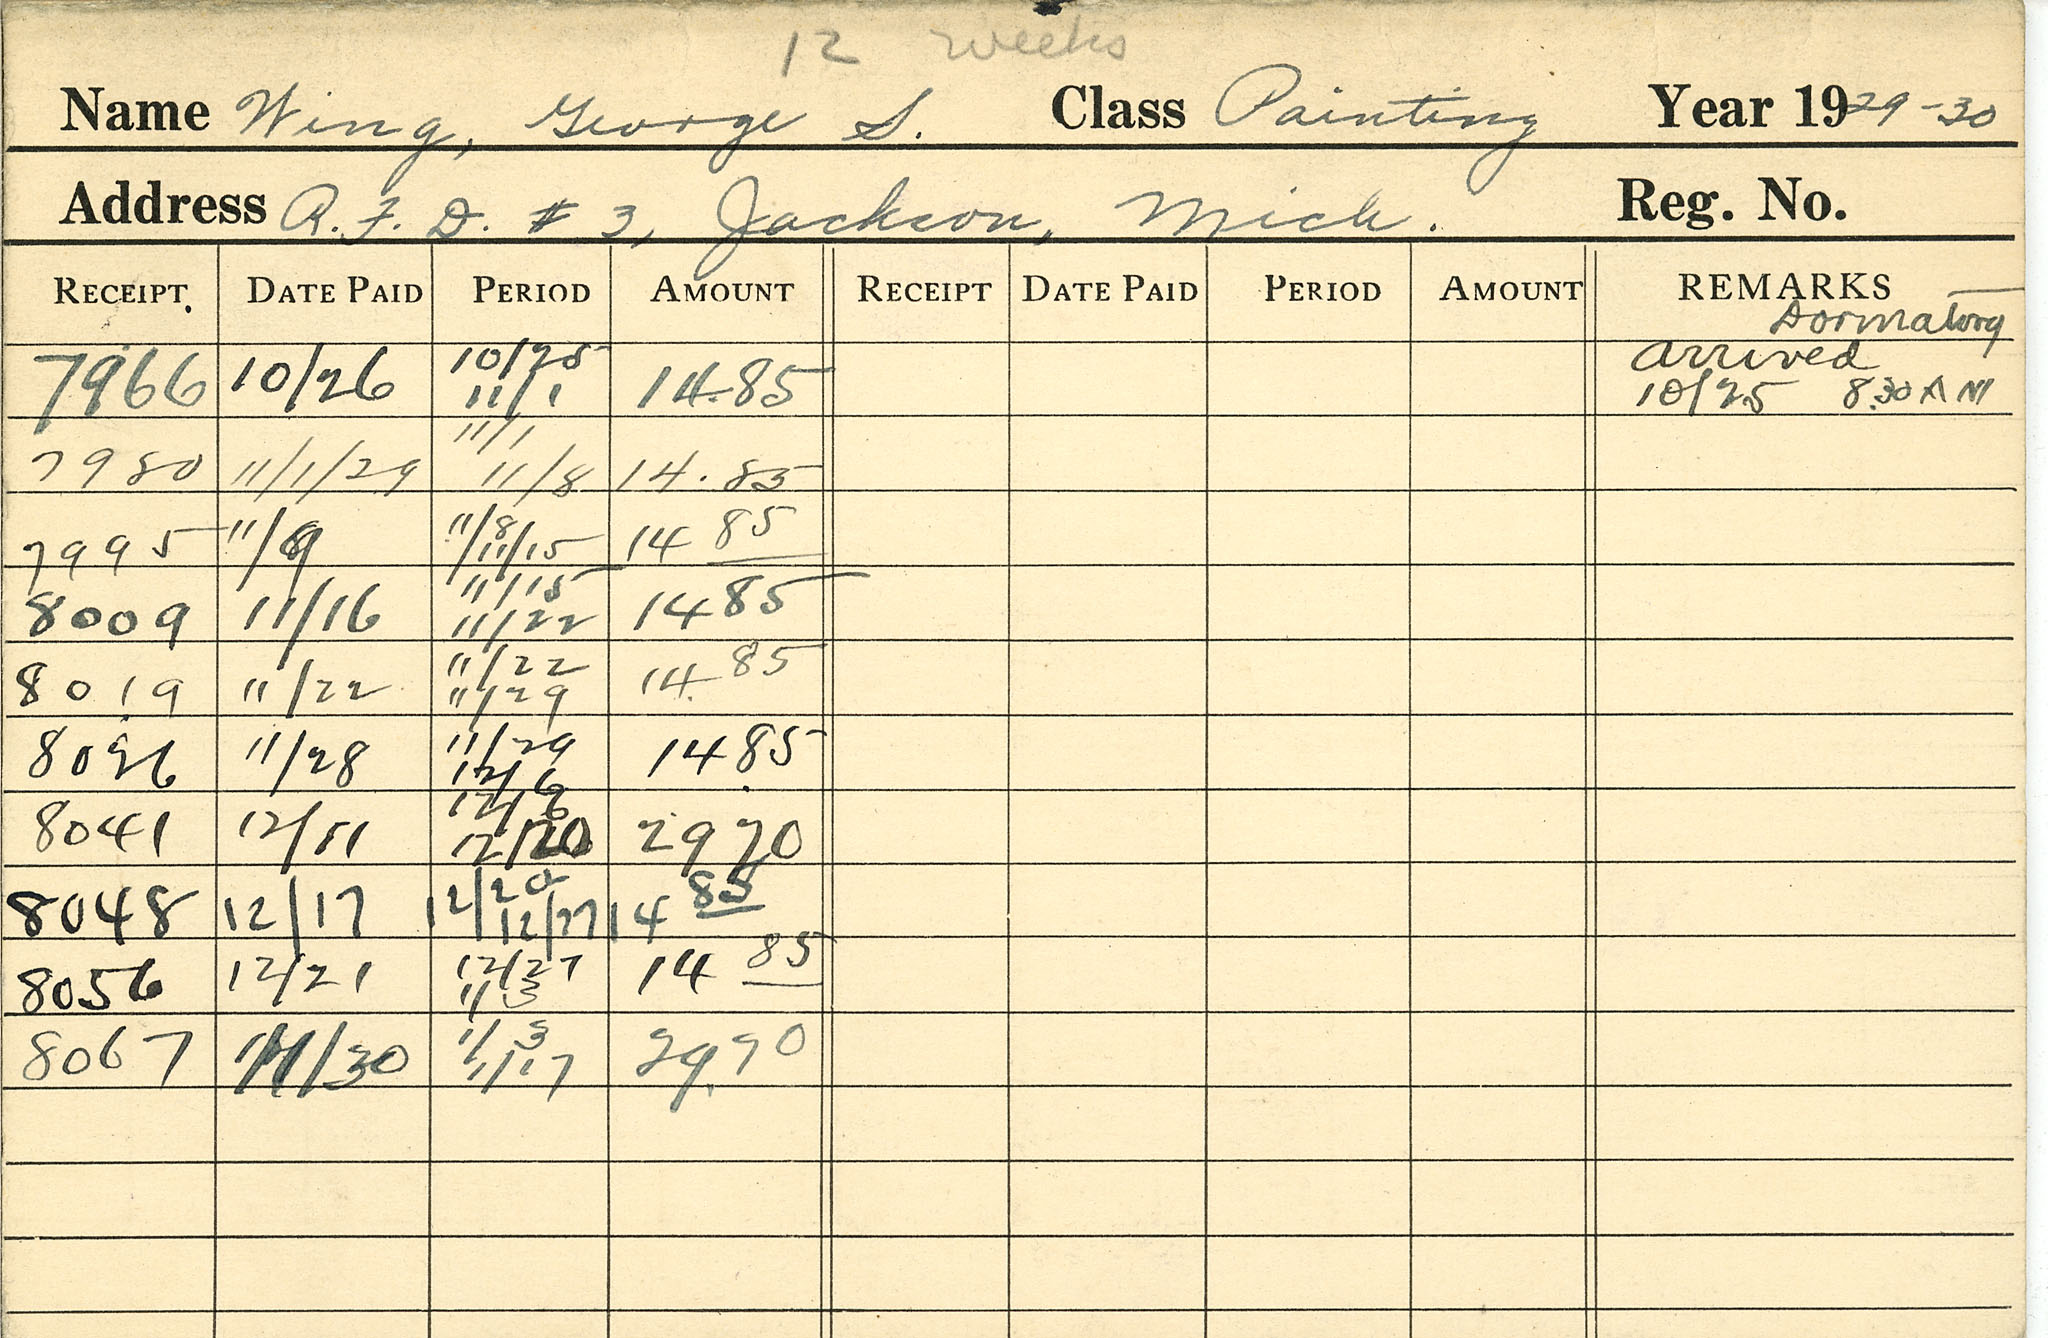 12 weeks
Name Wing, George S. Class Painting Year 1929-30
Address R.F.D. # 3, Jackson, Mich. Reg. No.
RECEIPT. DATE PAID PERIOD AMOUNT RECEIPT DATE PAID PERIOD AMOUNT REMARKS
Dormatory
7966 10/26 10/25 11/1 14.85 arrived 10/25 8.30 AM
7980 11/1/29 11/1 11/8 14.85
7995 11/9 11/8 11/15 14 85
8009 11/16 11/15 11/22 14 85
8019 11/22 11/22 11/29 14 85
8026 11/28 11/29 12/6 14 85
8041 12/11 12/6 12/20 29 70
8048 12/17 12/20 12/27 14 85
8056 12/21 12/27 1/3 14 85
8067 /30 1/3 1/17 29.70